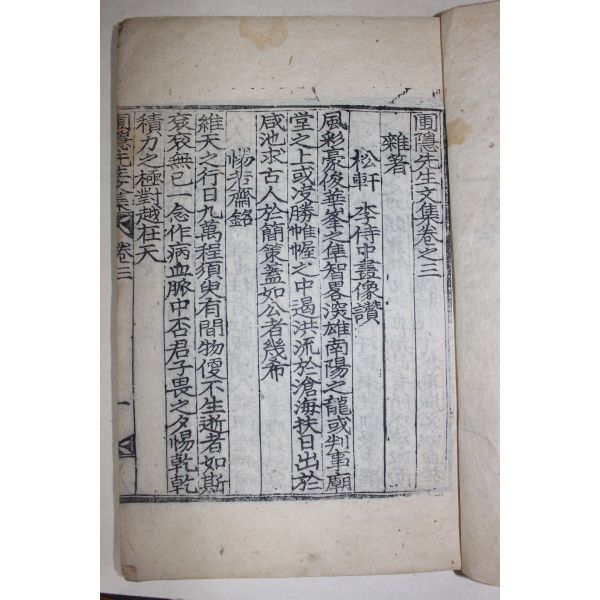 圃隱先生文集卷之三
雜著
松軒李侍中畫像讚
風彩豪俊華峯之隼智畧深雄南陽之龍或判事廟
堂之上或决勝帷幄之中遏洪流於滄海扶日出於
咸池求古人於簡策蓋如公者幾希
惕若齋銘
維天之行日九萬程須臾有間物便不生逝者如斯
袞袞無已一念作病血脈中否君子畏之夕惕乾乾
積力之極對越在天
圃隱先生文集 卷三 一